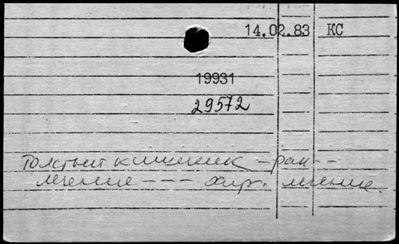 14.02.83 КС
19931
29572
Толстый кишечник - рак -
лечение --- хир. лечение.